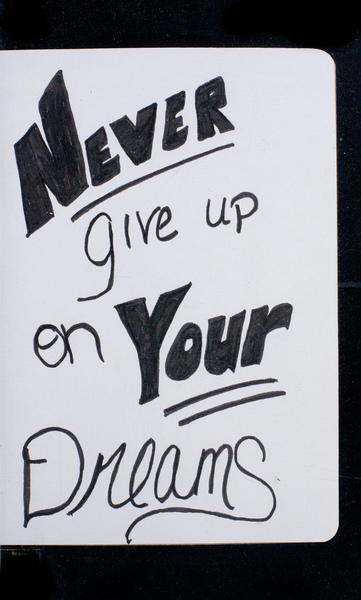 NEVER
give up
on Your
Dreams